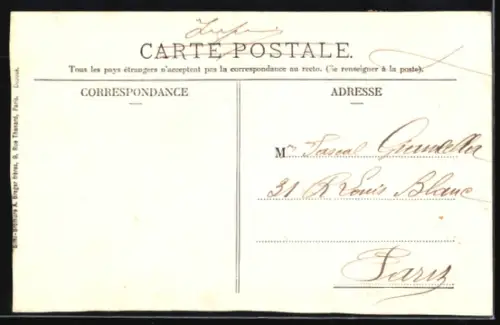 CARTE POSTALE.
Tous les pays étrangers n'acceptent pas la correspondance au recto. (Se renseigner à la poste).
CORRESPONDANCE
ADRESSE
M Pascal
31 R Louis Blanc
Paris
Simi-Bromure A. Breger frères, 9, Rue Thénard, Paris.